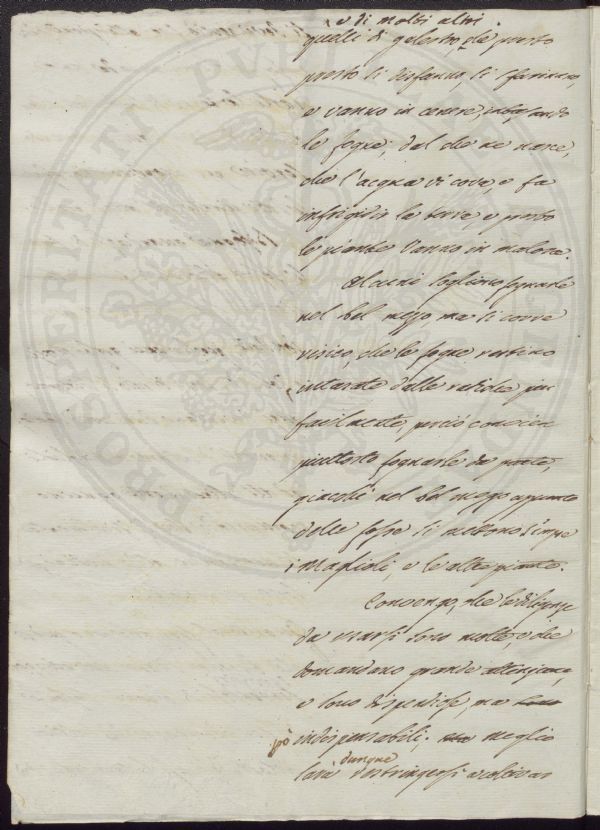 e di molti altri
quelli di gelestro, che presto
presto si disfanno, si sfarinano,
e vanno in cenere, intasando
le fogne, dal che ne nasce,
che l'acqua vi cova e fa
infrigidir la terra, e presto
le piante vanno in malora.
Alcuni sogliono fognarle
nel bel mezzo ma si corre
risico, che le fogne restino
intasate dalle radiche più
facilmente, perciò conviene
piuttosto fognarle da parte,
giacchè nel bel mezzo appunto
delle fosse si mettono sempre
i maglioli, e le altre piante.
Convengo, che le diligenze
da usarsi sono molte, e che
domandano grande attenzione,
e sono dispendiose, ma sono
però indispensabili. ma meglio
dunque
sarà restringersi a coltivar
PROSPERITATI PUBLICAE